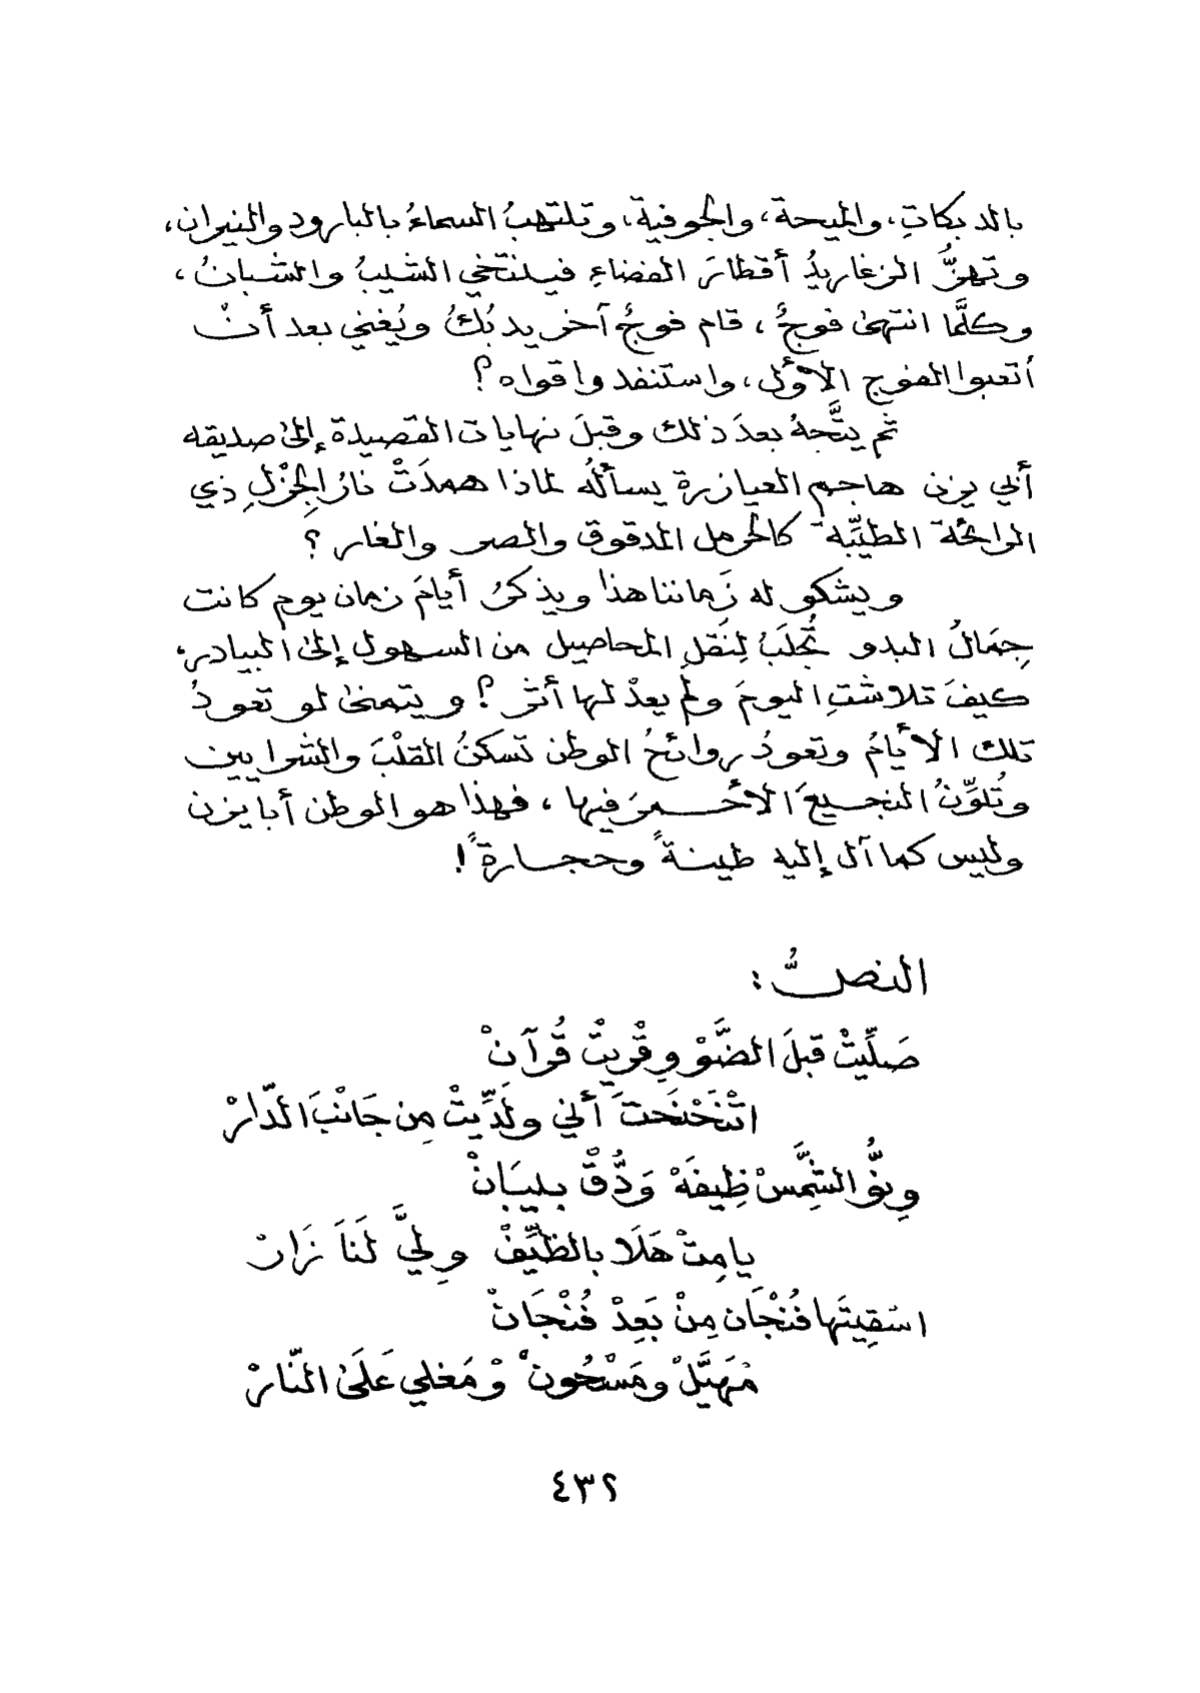 بالدبكاتِ، والميحة، والجوفية، وتلتهبُ السماءُ بالبارود والنيران،
وتهزُّ الزغاريدُ أقطارَ الفضاءِ فينتخي الشيبُ والشبانُ،
وكلَّما انتهىٰ فوجٌ، قام فوجٌ آخر يدبُكُ ويُغني بعد أنْ
أتعبوا الفوج الأوَّل، واستنفدوا قواه؟
ثم يتَّجهُ بعدَ ذلك وقبلَ نهايات القصيدة إلىٰ صديقه
أبي يزن هاجم العيازرة يسألُه لماذا همدَتْ نارُ الجِزْلِ ذي
الرائحة الطيِّبة كالحرمل المدقوق والصر والغار؟
ويشكو له زَماننا هذا ويذكرُ أيامَ زمان يوم كانت
جِمَالُ البدو تُجلَبُ لِنَقلِ المحاصيل من السهول إلىٰ البيادر،
كيفَ تلاشتِ اليومَ ولم يعدْ لها أثر؟ ويتمنىٰ لو تعودُ
تلك الأيامُ وتعودُ روائحُ الوطن تسكنُ القلْبَ والشرايين
وتُلوِّنُ النجيعَ الأحمرَ فيها، فهذا هو الوطن أبا يزن
وليس كما آل إليه طينةً وحجارةً!
النصُّ:
صَلِّيتْ قبلَ الضَّوْ وِقْرِيتْ قُرآنْ
اتْنَحْنَحتَ أني ولَدِّيتْ مِن جَانْبَ الدّارْ
وِنوُّ الشَِّمَّسْ ظِيفَهْ وَدُّقْ بيبَانْ
يا مِتْ هَلَا بالظِّيِّفْ ولِيَّ لَنَا زَارْ
اسْقِيتَها فُنْجَان مِنْ بَعِدْ فُنْجَانْ
مْهَيَّلْ ومَسْحُونْ وْمَغلي عَلَىٰ النّارْ
٤٣٢